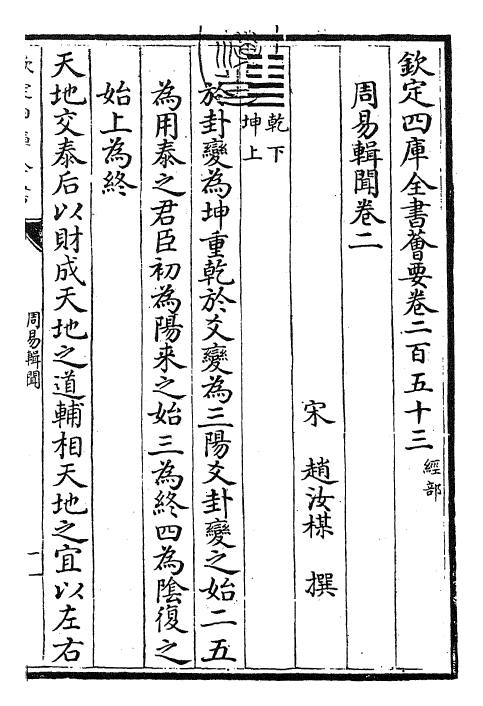 欽定四庫全書薈要卷二百五十三 經部
周易輯聞卷二
宋 趙汝楳 撰
乾下
坤上
於卦變為坤重乾於爻變為三陽爻卦變之始二五
為用泰之君臣初為陽来之始三為終四為陰復之
始上為終
天地交泰后以財成天地之道輔相天地之宜以左右
周易輯聞